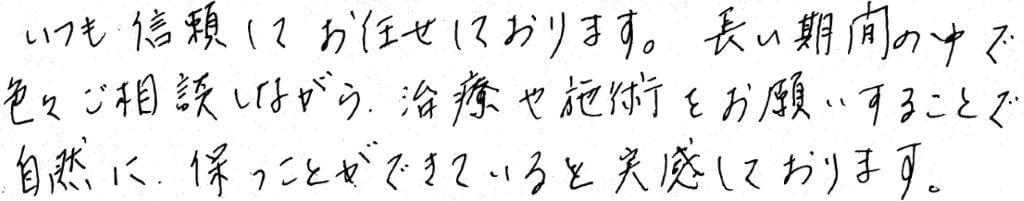 いつも信頼してお任せしております。長い期間の中で
色々ご相談しながら、治療や施術をお願いすることで
自然に、保つことができていると実感しております。